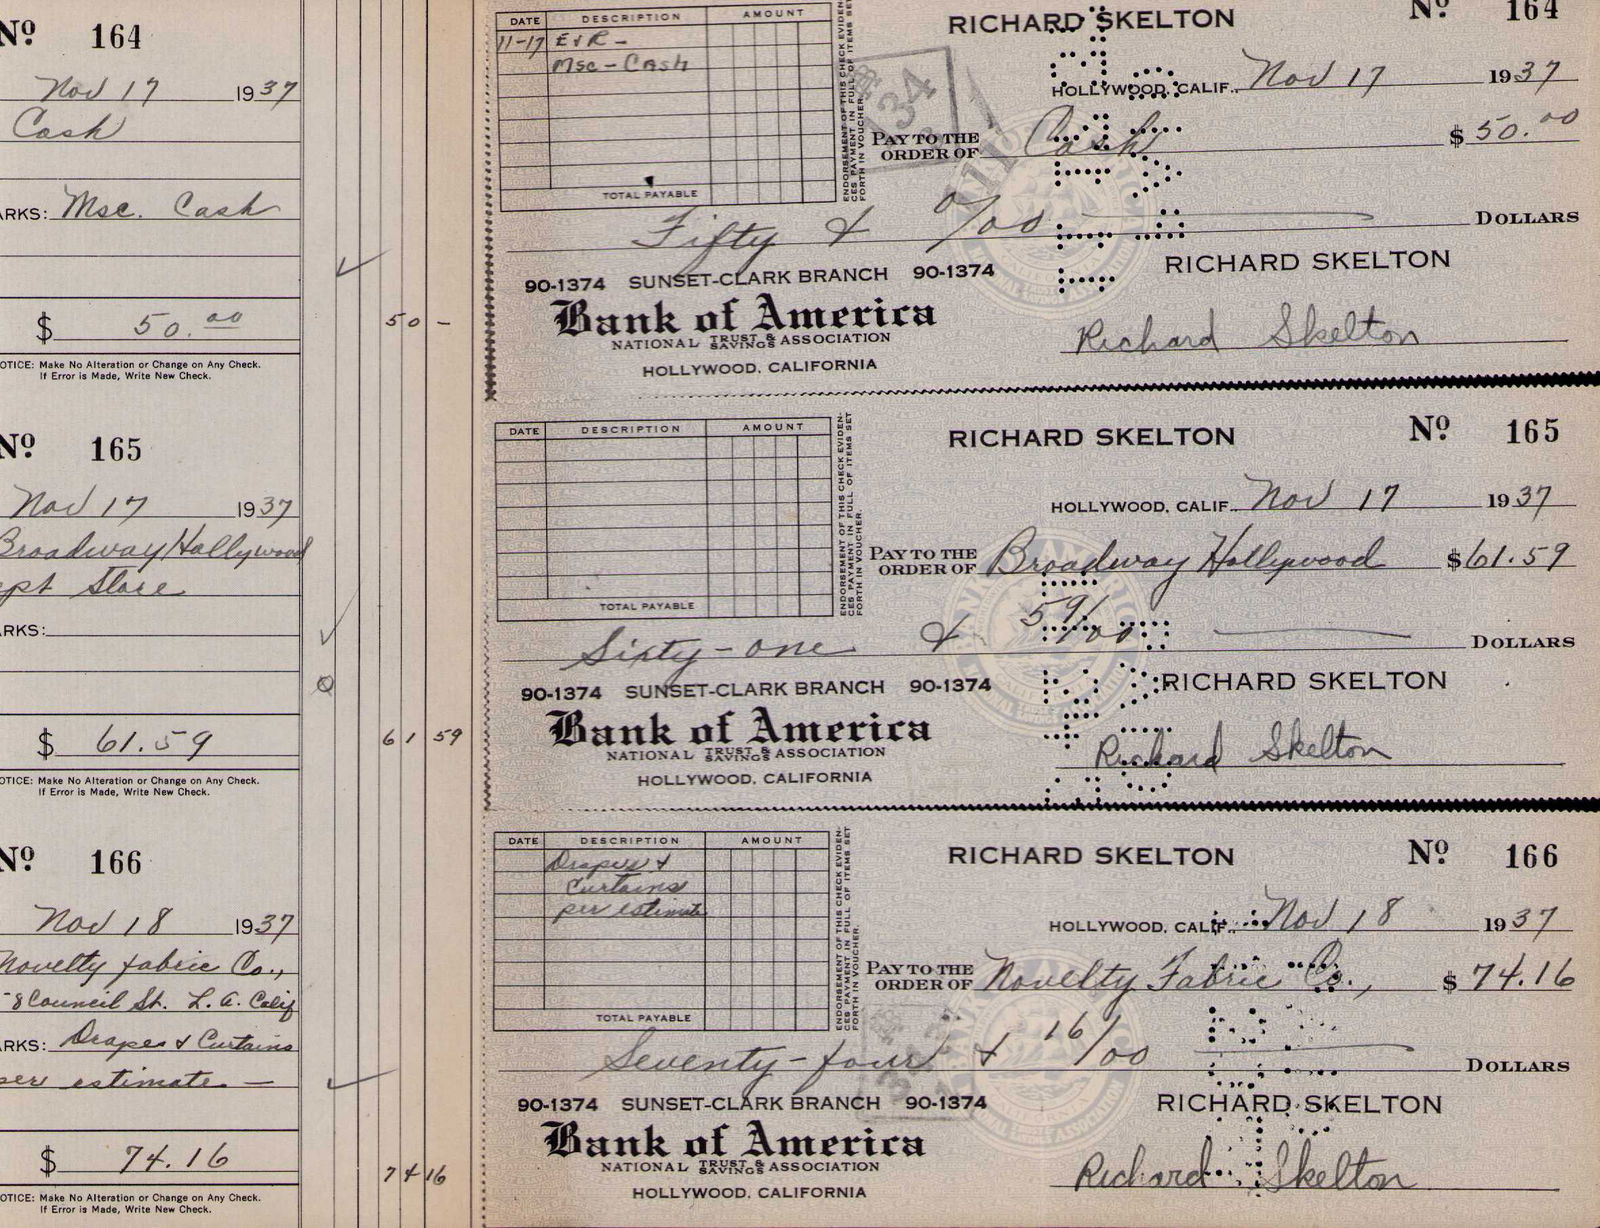 Nº 164
Nov 17 1937
Cash
ARKS: Msc. Cash
$ 50.00
50 -
OTICE: Make No Alteration or Change on Any Check.
If Error is Made, Write New Check.
DATE DESCRIPTION AMOUNT
11-17 E & R -
Msc - Cash
TOTAL PAYABLE
ENDORSEMENT OF THIS CHECK EVIDEN-
CES PAYMENT IN FULL OF ITEMS SET
FORTH IN VOUCHER.
34
RICHARD SKELTON Nº 164
HOLLYWOOD, CALIF., Nov 17 1937
PAY TO THE
ORDER OF Cash $ 50.00
Fifty & 0/00 DOLLARS
90-1374 SUNSET-CLARK BRANCH 90-1374
RICHARD SKELTON
Bank of America
NATIONAL TRUST & SAVINGS ASSOCIATION
HOLLYWOOD, CALIFORNIA
Richard Skelton
Nº 165
Nov 17 1937
Broadway Hollywood
ept Store
ARKS:
$ 61.59
61 59
OTICE: Make No Alteration or Change on Any Check.
If Error is Made, Write New Check.
DATE DESCRIPTION AMOUNT
TOTAL PAYABLE
ENDORSEMENT OF THIS CHECK EVIDEN-
CES PAYMENT IN FULL OF ITEMS SET
FORTH IN VOUCHER.
RICHARD SKELTON Nº 165
HOLLYWOOD, CALIF., Nov 17 1937
PAY TO THE
ORDER OF Broadway Hollywood $ 61.59
Sixty-one & 59/00 DOLLARS
90-1374 SUNSET-CLARK BRANCH 90-1374
RICHARD SKELTON
Bank of America
NATIONAL TRUST & SAVINGS ASSOCIATION
HOLLYWOOD, CALIFORNIA
Richard Skelton
Nº 166
Nov 18 1937
Novelty Fabric Co.,
8 Council St. L.A. Calif
ARKS: Drapes & Curtains
per estimate -
$ 74.16
74 16
OTICE: Make No Alteration or Change on Any Check.
If Error is Made, Write New Check.
DATE DESCRIPTION AMOUNT
Drapes &
Curtains
per estimate
TOTAL PAYABLE
ENDORSEMENT OF THIS CHECK EVIDEN-
CES PAYMENT IN FULL OF ITEMS SET
FORTH IN VOUCHER.
RICHARD SKELTON Nº 166
HOLLYWOOD, CALIF., Nov 18 1937
PAY TO THE
ORDER OF Novelty Fabric Co., $ 74.16
Seventy-four & 16/00 DOLLARS
90-1374 SUNSET-CLARK BRANCH 90-1374
RICHARD SKELTON
Bank of America
NATIONAL TRUST & SAVINGS ASSOCIATION
HOLLYWOOD, CALIFORNIA
Richard Skelton